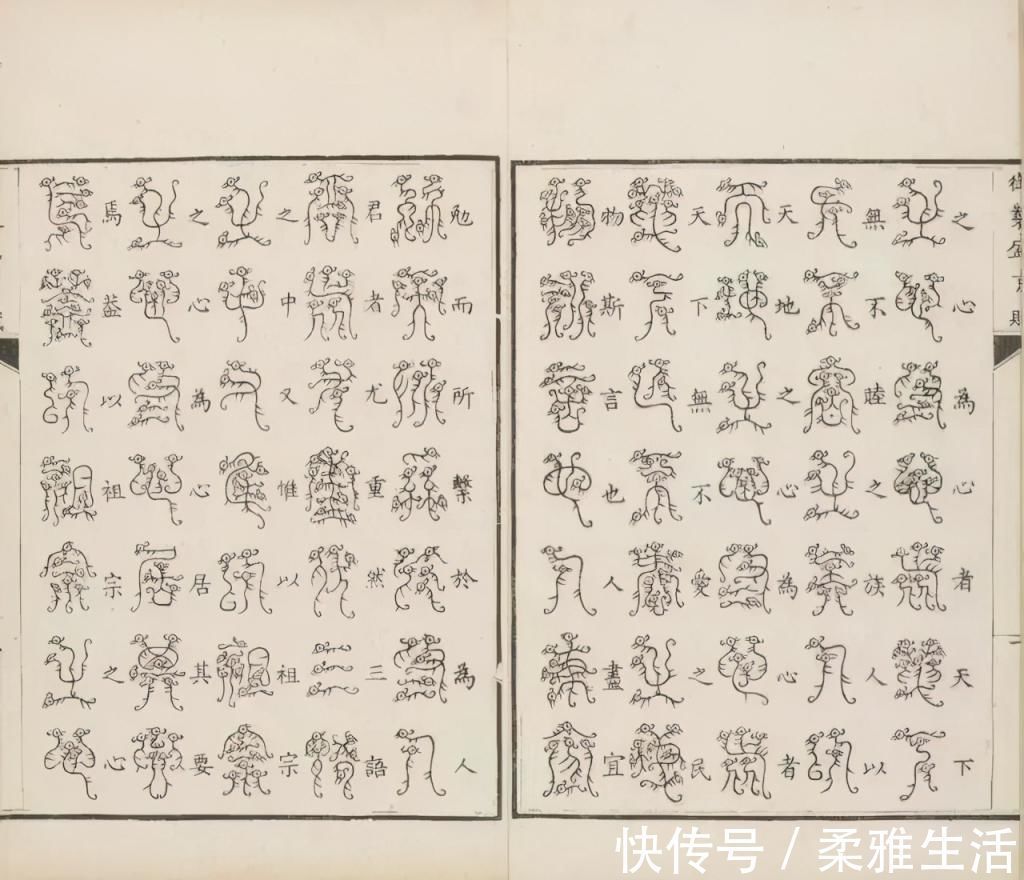 御製盛京賦
之心為心者天下
無不睦之族人以
天地之心為心者
天下無不愛之民
物斯言也人盡宜
勉而所繫於為人
君者尤重然三語
之中又惟以祖宗
之心為心居其要
焉蓋以祖宗之心
快传号 / 柔雅生活